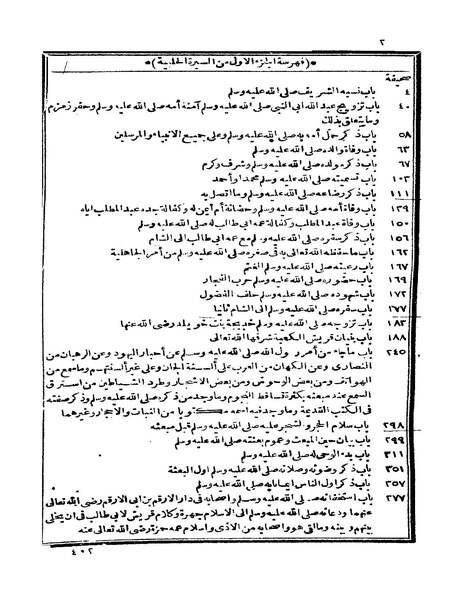 ٢
*(فهرسة الجزء الاول من السيرة الحلبية)*
صحيفة
٤ باب نسبه الشريف صلى الله عليه وسلم
٤٠ باب تزويج عبد الله أبى النبى صلى الله عليه وسلم آمنة أمه صلى الله عليه وسلم وحفر زمزم
وما يتعلق بذلك
٥٨ باب ذكر حمل أمه به صلى الله عليه وسلم وعلى جميع الانبياء والمرسلين
٦٣ باب وفاة والده صلى الله عليه وسلم
٦٧ باب ذكر مولده صلى الله عليه وسلم وشرف وكرم
١٠٣ باب تسميته صلى الله عليه وسلم محمدا وأحمد
١١١ باب ذكر رضاعه صلى الله عليه وسلم وما اتصل به
١٣٩ باب وفاة أمه صلى الله عليه وسلم وحضانة أم أيمن له وكفالة جده عبد المطلب اياه
١٥٠ باب وفاة عبد المطلب وكفالة عمه أبى طالب له صلى الله عليه وسلم
١٥٦ باب ذكر سفره صلى الله عليه وسلم مع عمه أبى طالب الى الشام
١٦٢ باب ما حفظه الله تعالى به فى صغره صلى الله عليه وسلم من أمر الجاهلية
١٦٧ باب رعيته صلى الله عليه وسلم الغنم
١٦٩ باب حضوره صلى الله عليه وسلم حرب الفجار
١٧٢ باب شهوده صلى الله عليه وسلم حلف الفضول
١٧٧ باب سفره صلى الله عليه وسلم الى الشام ثانيا
١٨٣ باب تزوجه صلى الله عليه وسلم خديجة بنت خويلد رضى الله عنها
١٨٨ باب بنيان قريش الكعبة شرفها الله تعالى
٢٤٥ باب ما جاء من أمر رسول الله صلى الله عليه وسلم عن أحبار اليهود وعن الرهبان من
النصارى وعن الكهان من العرب على ألسنة الجان وعلى غير ألسنتهم وما سمع من
الهواتف ومن بعض الوحوش ومن بعض الاشجار وطرد الشياطين من استرق
السمع عند مبعثه بكثرة تساقط النجوم وما وجد من ذكره صلى الله عليه وسلم وذكر صفته
فى الكتب القديمة وما وجد فيه اسمه مكتوبا من النبات والأحجار وغيرهما
٢٩٨ باب سلام الحجر والشجر عليه صلى الله عليه وسلم قبل مبعثه
٢٩٩ باب بيان حين المبعث وعموم بعثته صلى الله عليه وسلم
٣١١ باب بدء الوحى له صلى الله عليه وسلم
٣٥١ باب ذكر وضوئه وصلاته صلى الله عليه وسلم أول البعثة
٣٥٧ باب ذكر أول الناس ايمانا به صلى الله عليه وسلم
٣٧٧ باب استخفائه صلى الله عليه وسلم وأصحابه فى دار الارقم بن أبى الارقم رضى الله تعالى
عنهما ودعائه صلى الله عليه وسلم الى الاسلام جهرة وكلام قريش لابى طالب فى ان يخلى
بينهم وبينه وما لقى هو وأصحابه من الاذى واسلام عمه حمزة رضى الله تعالى عنه
٤٠٢